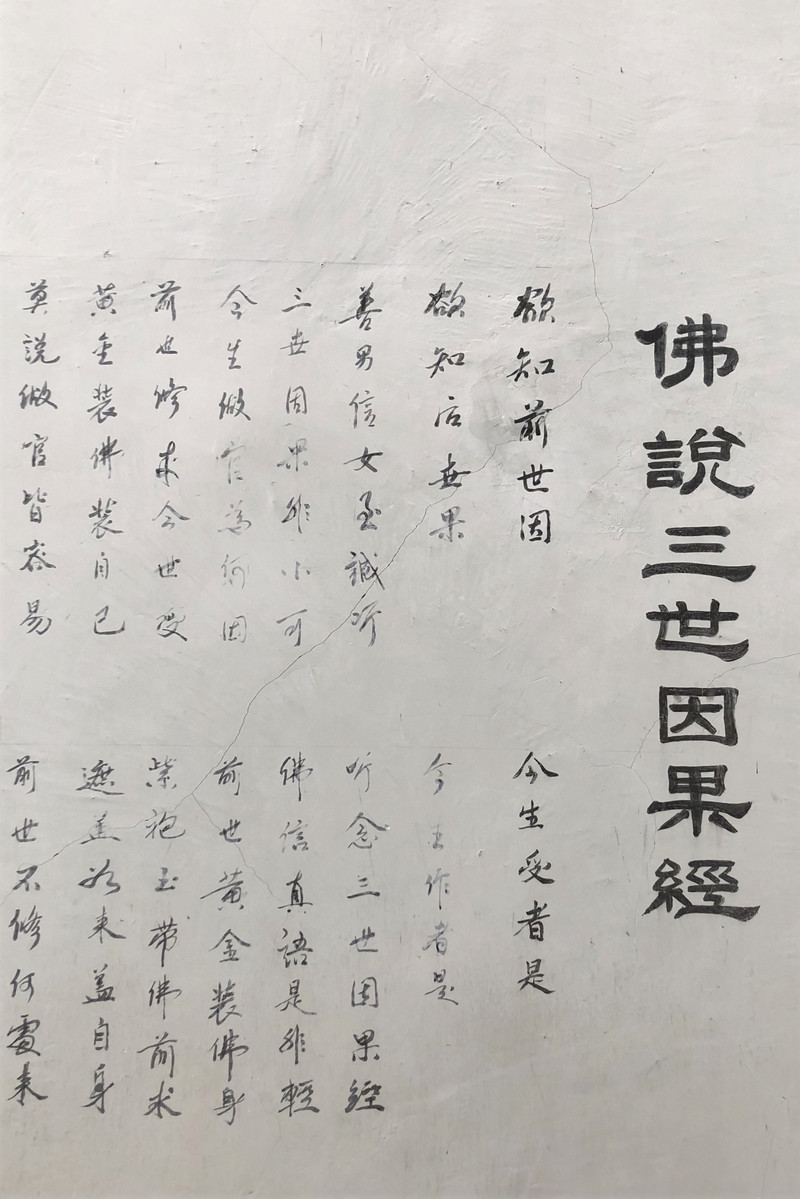 佛說三世因果經
欲知前世因
今生受者是
欲知后世果
今生作者是
善男信女至誠听
听念三世因果經
三世因果非小可
佛信真語是非輕
今生做官為何因
前世黃金裝佛身
前世修來今世受
紫袍玉带佛前求
黃金裝佛裝自己
遮盖如来蓋自身
莫說做官皆容易
前世不修何處来